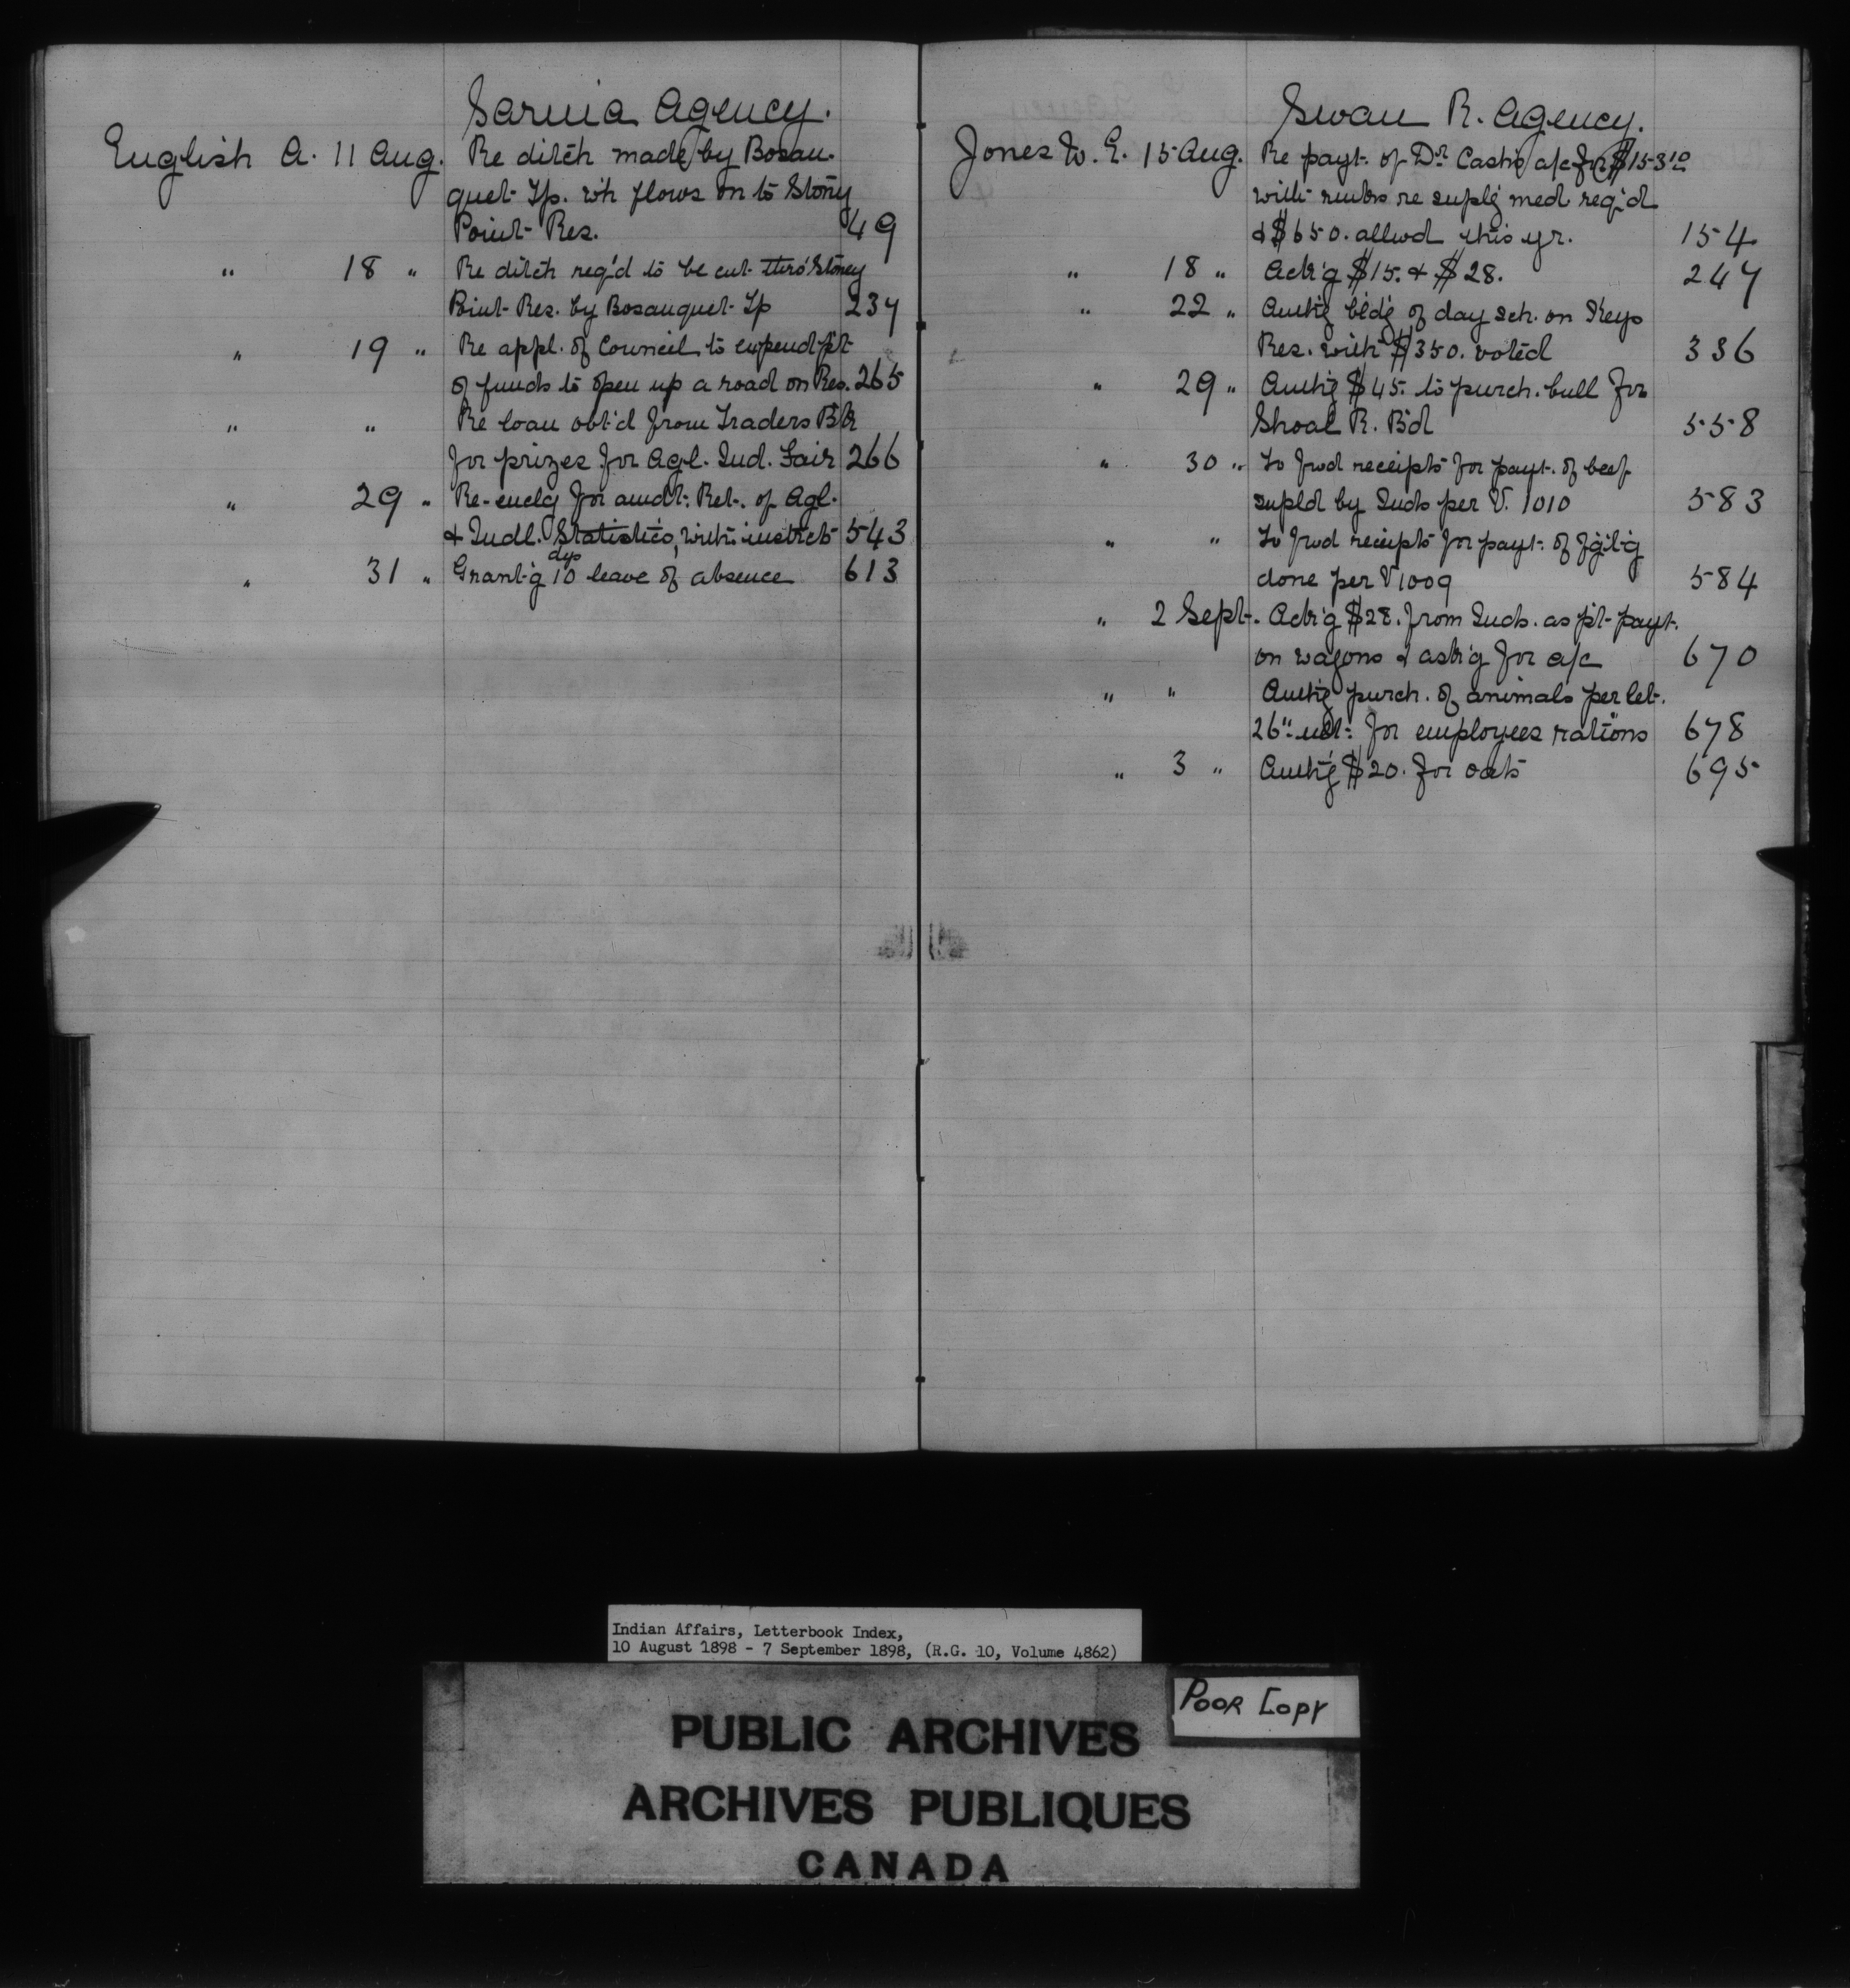 Sarnia Agency.
English A. 11 Aug. Re ditch made by Bosan-
quet Tp. wh flows on to Stony
Point Res. 49
" 18 " Re ditch req'd to be cut thro' Stoney
Point Res. by Bosanquet Tp 237
" 19 " Re appl. of Council to expend pt
of funds to open up a road on Res. 265
" " Re loan obt'd from Traders Bk
for prizes for Agl. Ind. Fair 266
" 29 " Re-enclg for amdt: Ret. of Agl.
& Indl. Statistics, with instrcts 543
dys
" 31 " Grant'g 10 leave of absence 613
Swan R. Agency.
Jones W. E. 15 Aug. Re payt. of Dr. Cash's a/c for $15310
with rmks re suplg med req'd
& $650. allwd this yr. 154
" 18 " Ack'g $15. & $28. 247
" 22 " Auth'g bldg of day sch. on Keys
Res. with $350. voted 336
" 29 " Auth'g $45. to purch. bull for
Shoal R. B'd 558
" 30 " To fwd receipts for payt. of beef
supld by Inds per V. 1010 583
" " To fwd receipts for payt. of fg't'g
done per V 1009 584
" 2 Sept. Ack'g $28. from Inds. as pt payt.
on wagons & ask'g for a/c 670
" " Auth'g purch. of animals per let.
26" ult: for employees rations 678
" 3 " Auth'g $20. for oats 695
Indian Affairs, Letterbook Index,
10 August 1898 - 7 September 1898, (R.G. 10, Volume 4862)
Poor Copy
PUBLIC ARCHIVES
ARCHIVES PUBLIQUES
CANADA